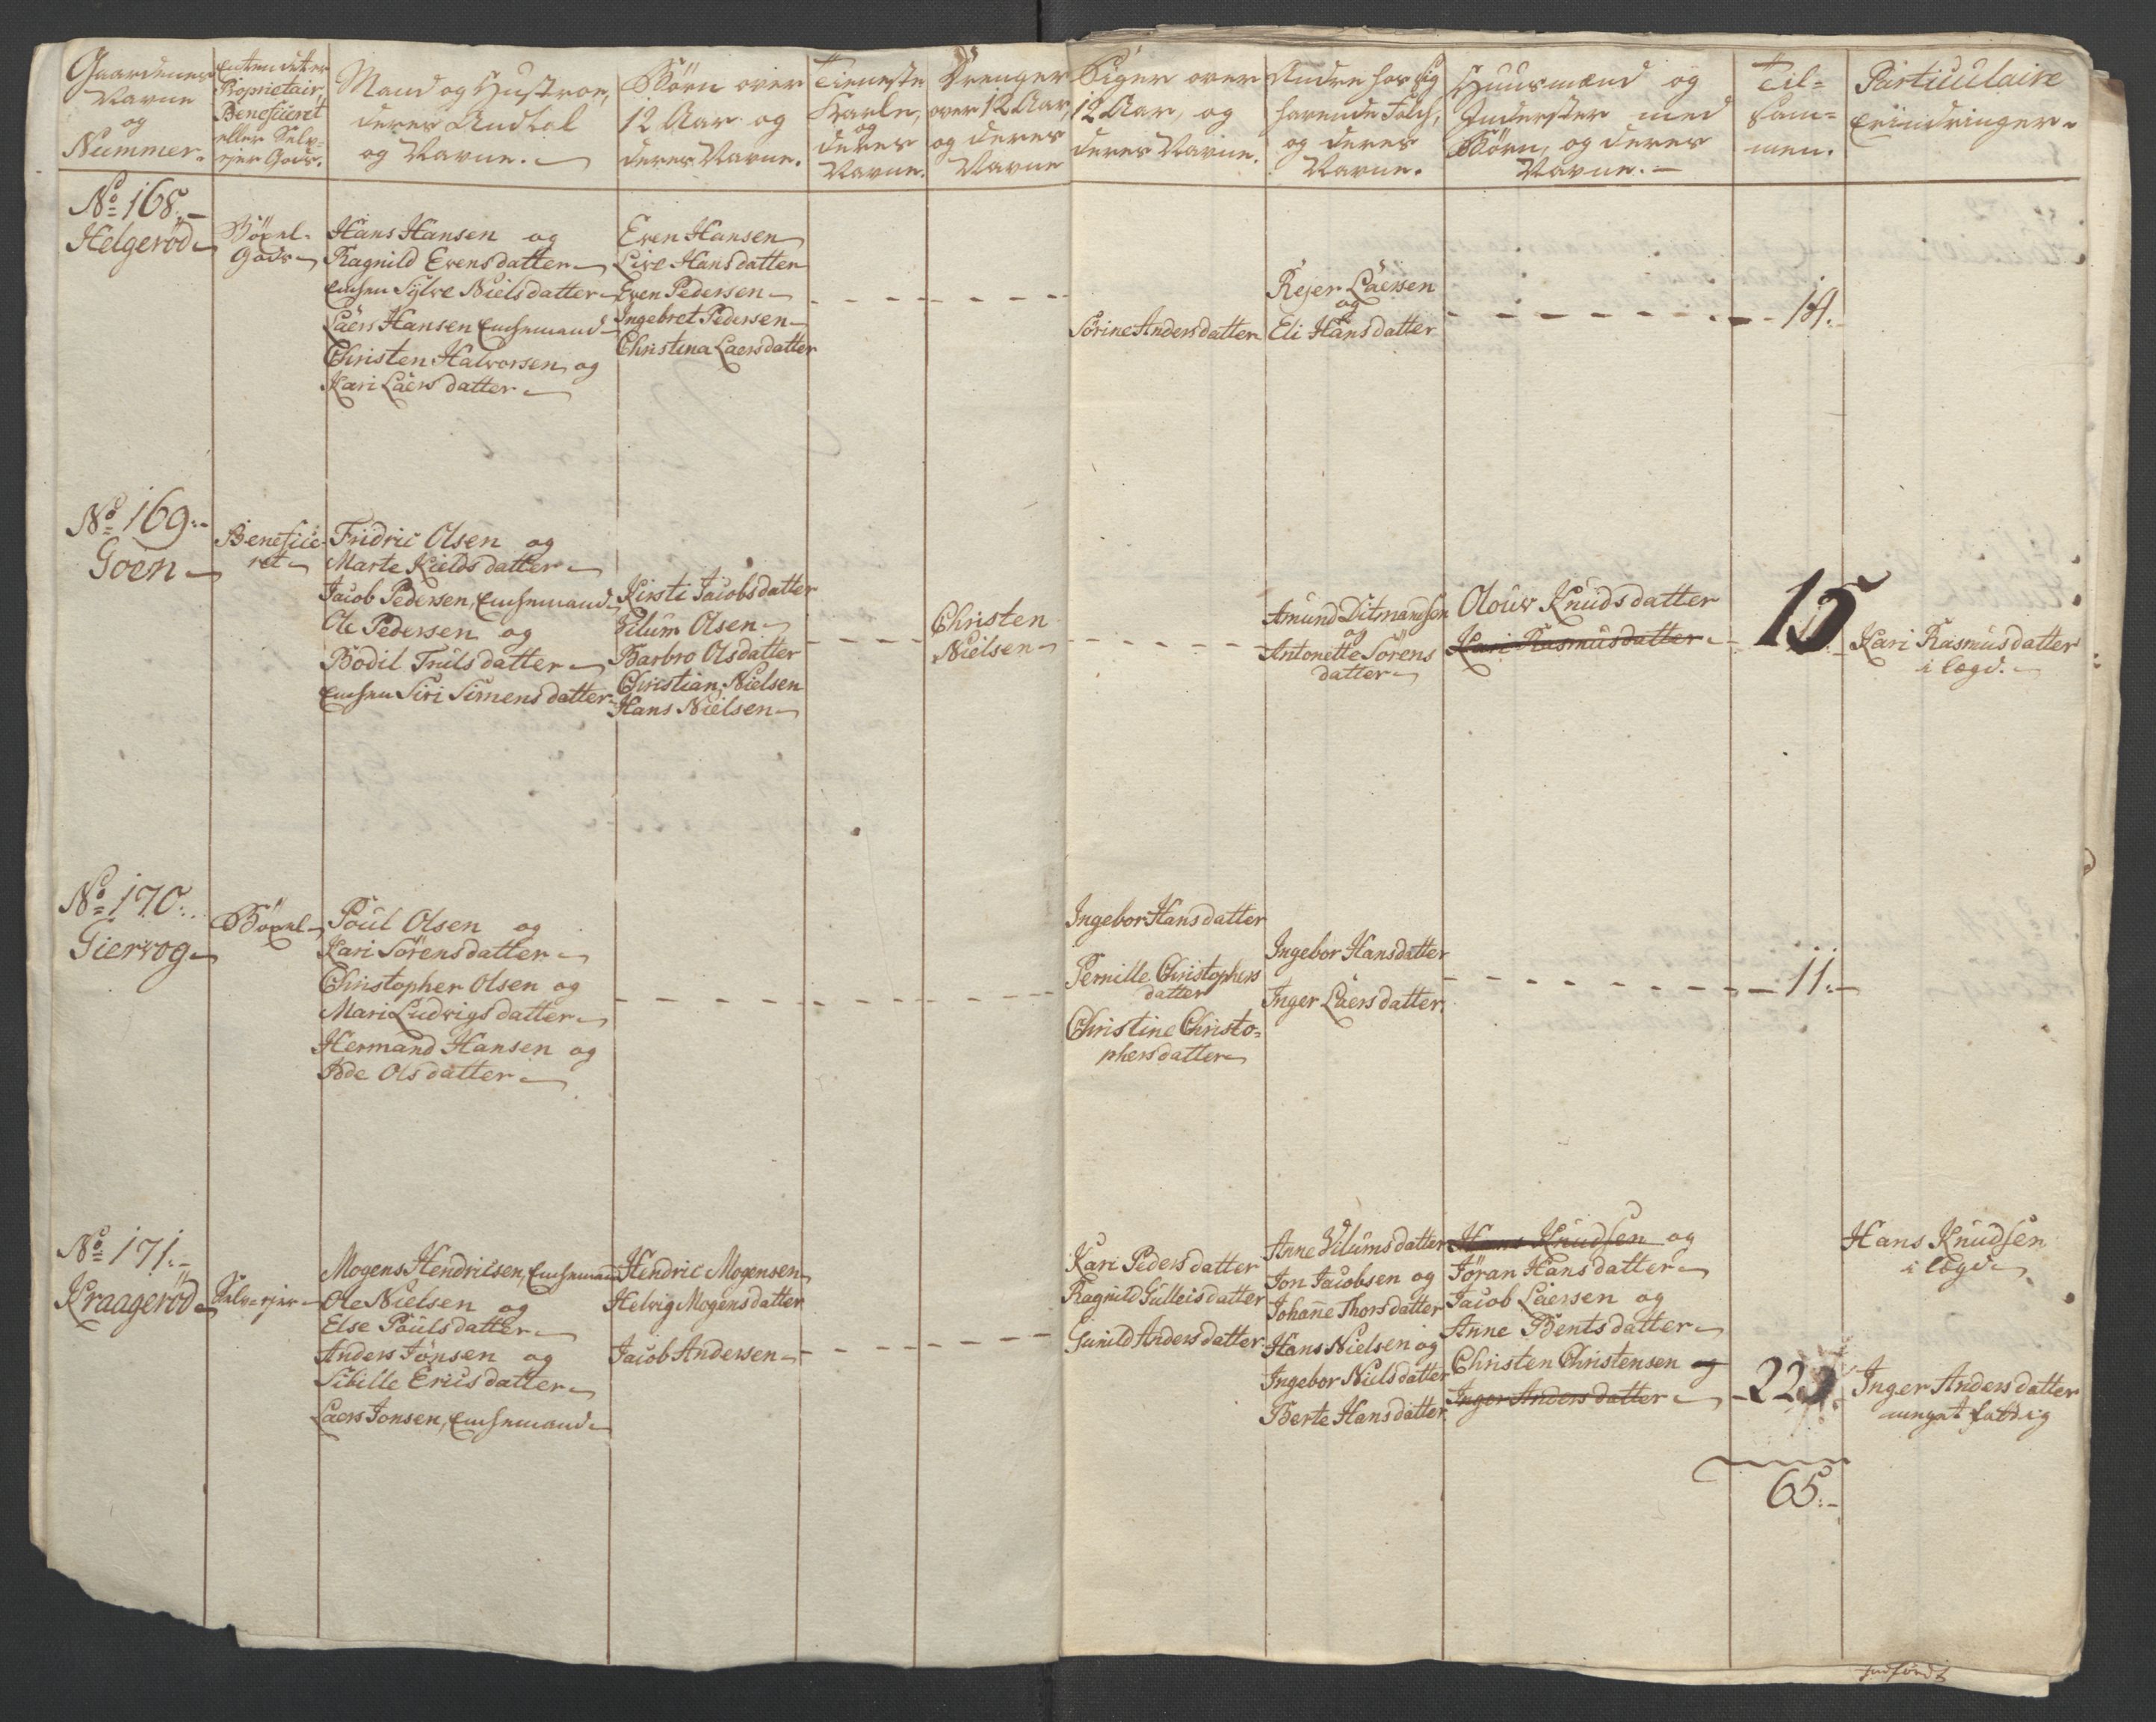 Gaardenes
Navne
og
Nummer.
Enten det er
Proprietair,
Beneficeret
eller Selv-
ejer Gods.
Mand og Hustroe,
deres Andtal
og Navne.
Børn over
12 Aar og
deres Navne.
Tieneste
Karle,
og
deres
Navne.
Drenger
over 12 Aar,
og deres
Navne
Piger over
12 Aar, og
deres Navne.
Andre hos sig
havende Folch,
og deres
Navne.
Huusmænd og
Inderster med
Børn, og deres
Navne.
Til-
sam-
men.
Particulaire
Erindringer.
No 168.
Helgerød
Gods
Hans Hansen og
Ragnild Evensdatter
Enchen Sylve Nielsdatter
Laers Hansen Enchemand
Christen Halvorsen og
Kari Laersdatter
Even Hansen
Live Hansdatter
Even Pedersen
Ingebret Pedersen
Christina Laersdatter
Sørine Andersdatter
Rejer Laersen
og
Eli Hansdatter
14.
No 169.
Goen
Benefice-
ret
Fridric Olsen og
Marte Kieldsdatter
Jacob Pedersen, Enchemand
Ole Pedersen og
Bodil Trulsdatter
Enchen Siri Simensdatter
Kirsti Jacobsdatter
Vilum Olsen
Barbro Olsdatter
Christian Nielsen
Hans Nielsen
Christen
Nielsen
Amund Ditmandsen
og
Antonette Sørens
datter
Olouw Knudsdatter
Kari Rasmusdatter
15
Kari Rasmusdatter
i Lægd.
No 170.
Giervog
Poul Olsen og
Kari Sørensdatter
Christopher Olsen og
Mari Ludvigsdatter
Hermand Hansen og
Bde Olsdatter
Ingebor Hansdatter
Pernille Christophers
datter
Christine Christo-
phersdatter
Ingebor Hansdatter
Inger Laersdatter
11.
No 171.
Kraagerød
Selv ejer
Mogens Hendricsen, Enchemand
Ole Nielsen og
Else Poulsdatter
Anders Jonsen og
Sibille Ericsdatter
Laers Jonsen, Enchemand
Hendric Mogensen
Helvig Mogensdatter
Jacob Andersen
Kari Pedersdatter
Ragnild Gulleisdatter
Gunild Andersdatter
Anne Vilumsdatter
Jon Jacobsen og
Johañe Thorsdatter
Hans Nielsen og
Ingebor Nielsdatter
Berte Hansdatter
Hans Knudsen og
Jøran Hansdatter
Jacob Laersen og
Anne Bentsdatter
Christen Christensen og
Inger Andersdatter
22
Hans Knudsen
i Lægd
Inger Andersdatter
meget fattig
65.
Indført